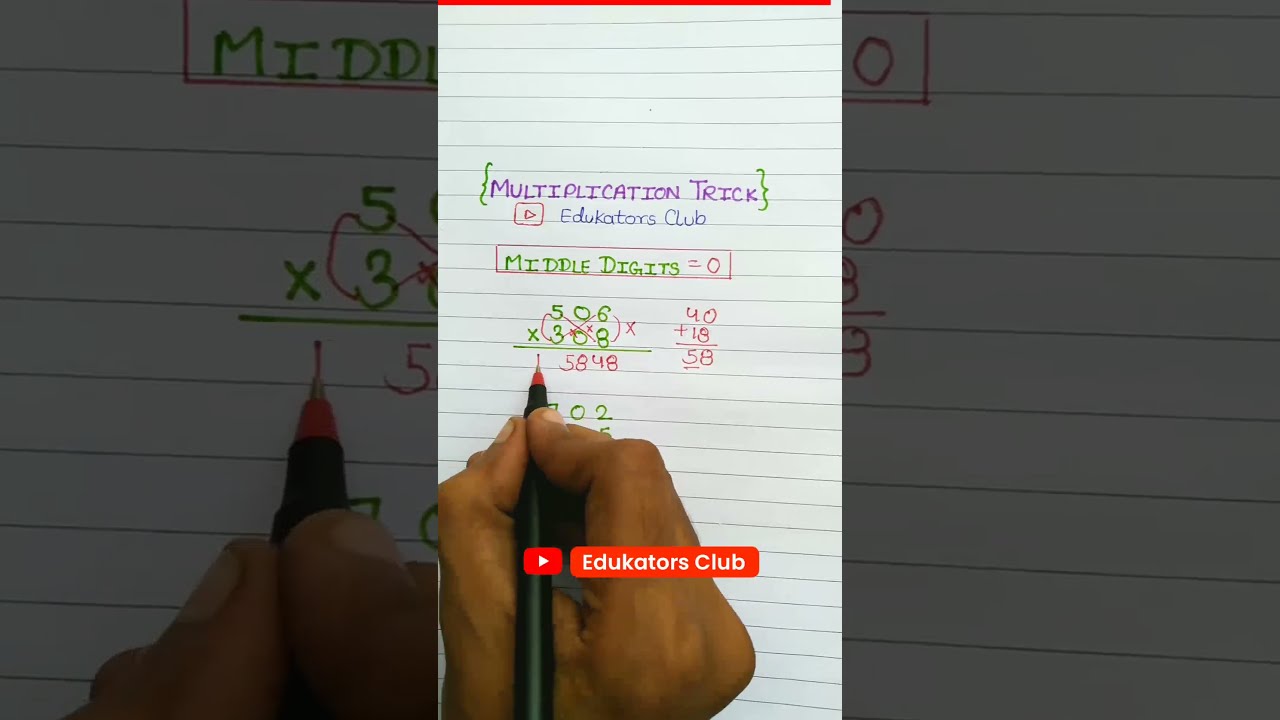 {MULTIPLICATION TRICK}
Edukators Club
MIDDLE DIGITS = 0
506
× 308
1 5848
×
40
+18
58
702
5
Edukators Club
MIDDL
0
5
× 3
1 5
0
3